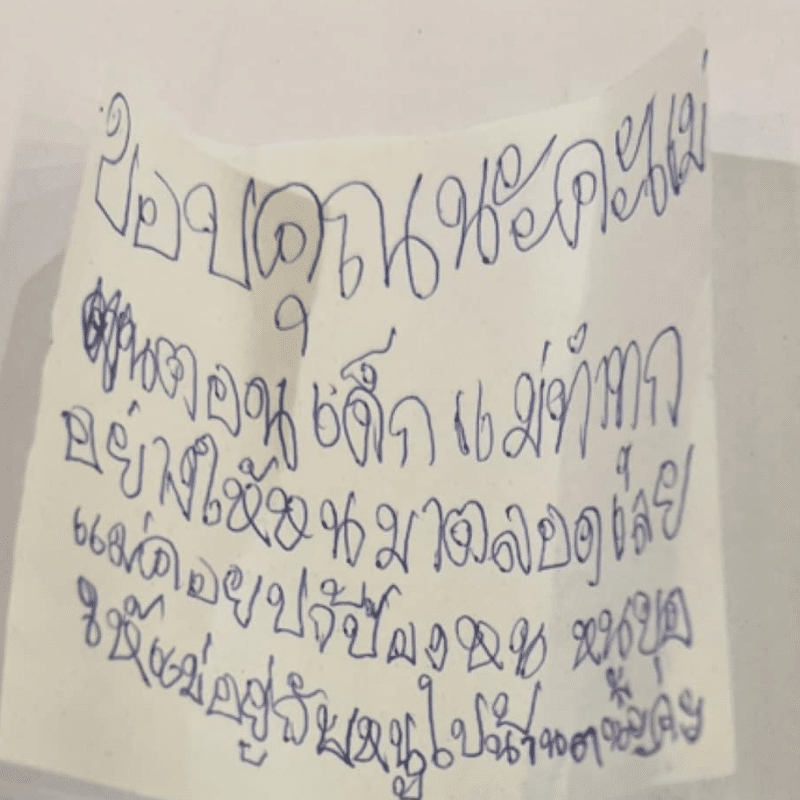 ขอบคุณนะคะแม่
ตอนเด็ก แม่ทำทุก
อย่างให้หนูมาตลอดเลย
แม่คอยปกป้องหนู หนูขอ
ให้แม่อยู่กับหนูไปนานๆนะคะ